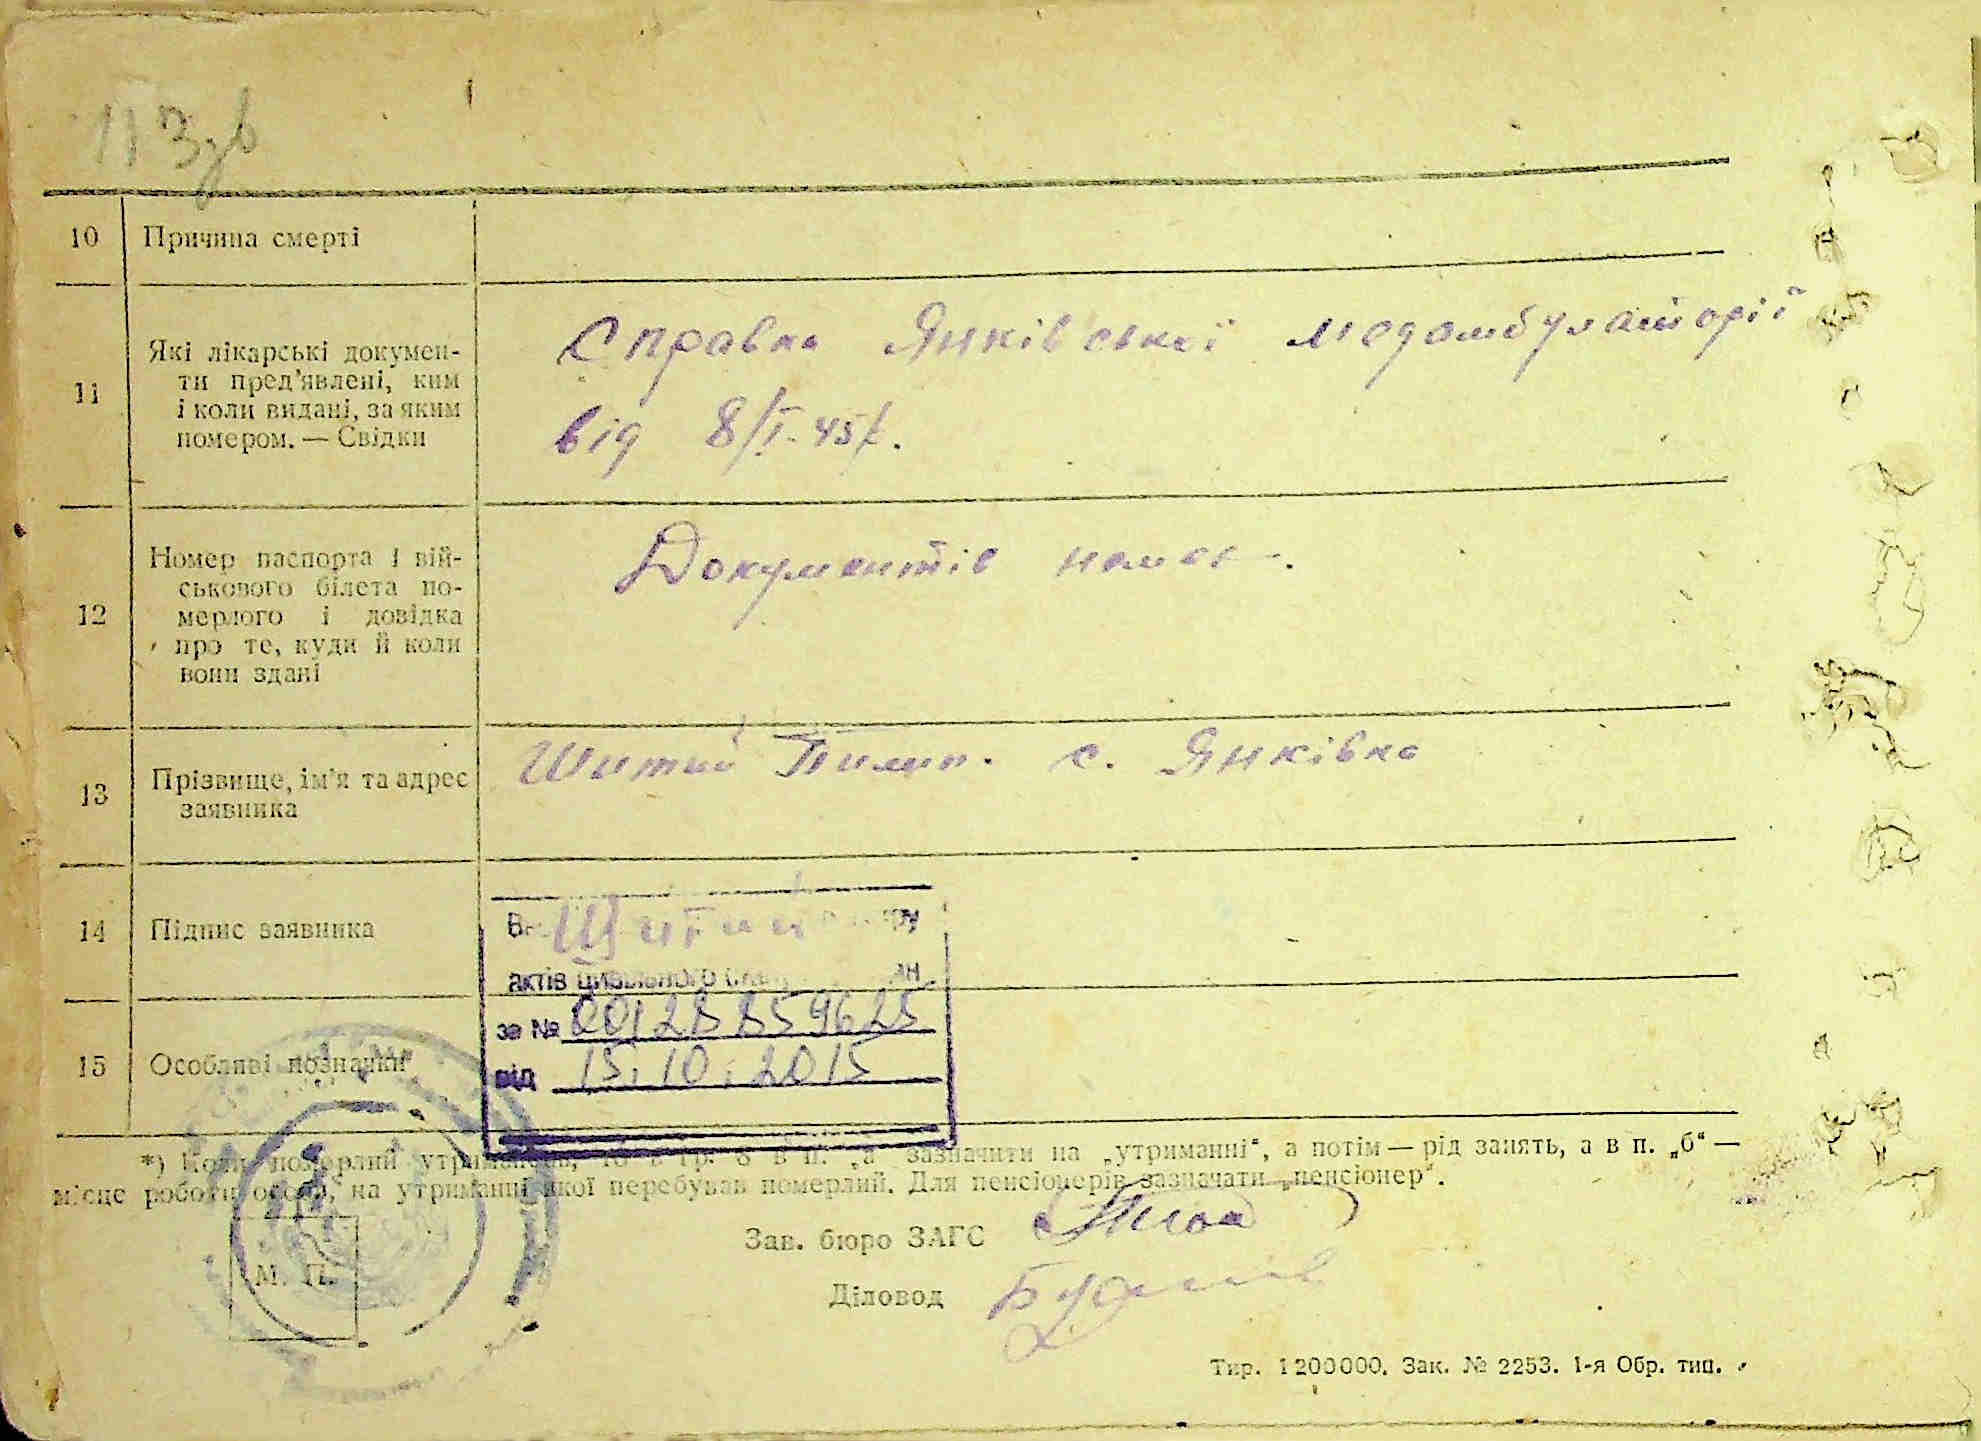 113зв
10 Причина смерті
11 Які лікарські докумен-
ти пред'явлені, ким
і коли видані, за яким
номером. — Свідки
Справка Янківської медамбулаторії
від 8/I-45р.
12 Номер паспорта і вій-
ськового білета по-
мерлого і довідка
про те, куди й коли
вони здані
Документів немає.
13 Прізвище, ім'я та адрес
заявника
Шитий Пилип. с. Янківка
14 Підпис заявника
Шитий
актів цивільного
за № 00128859625
від 15.10.2015
15 Особливі позначки
*) Коли померлий утриманець, то в гр. 8 в п. „а" зазначити на „утриманні", а потім — рід занять, а в п. „б" —
місце роботи особи, на утриманні якої перебував померлий. Для пенсіонерів зазначати „пенсіонер".
Зав. бюро ЗАГС
Діловод
М. П.
Тир. 1200000. Зак. № 2253. 1-я Обр. тип.